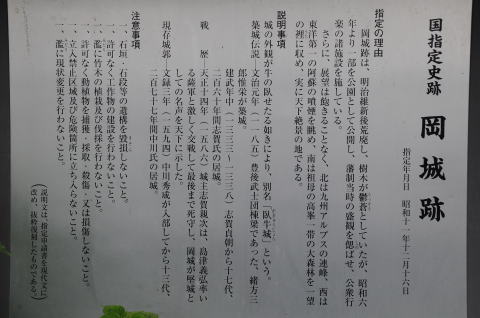 国指定史跡 岡城跡
指定年月日 昭和十一年十二月十六日
指定の理由
岡城跡は、明治維新後荒廃し、樹木が鬱蒼としていたが、昭和六
年より一部を公園として公開し、藩制当時の盛観を偲ばせ、公衆行
楽の諸施設を施している。
さらに、展望は飽きることなく、北は九州アルプスの連峰、西は
東洋第一の阿蘇の噴煙を眺め、南は祖母の高峯一帯の大森林を一望
の裡に収め、実に天下絶景の地である。
説明事項
城の外観が牛の臥せたる如きにより、別名「臥牛城」という。
築城伝説 文治元年(一一八五)豊後武士団棟梁であった、緒方三
郎惟栄が築城。
建武年中(一三三三~一三三八)志賀貞朝から十七代、
二百六十年間志賀氏の居城。
戦歴 天正十四年(一五八六)城主志賀親次は、島津義弘率い
る薩軍と激しく交戦して最後まで死守し、岡城が堅城と
しての名声を天下に示した。
現存城郭 文禄三年(一五九四)中川秀成が入部してから十三代、
二百七十七年間中川氏の居城。
注意事項
一、石垣・石段等の遺構を毀損しないこと。
一、許可なく工作物の建設を行わないこと。
一、濫に竹木の植栽及び伐採を行わないこと。
一、許可なく動植物を捕獲・採取・殺傷・又は損傷しないこと。
一、立入禁止区域及び危険箇所に立ち入らないこと。
一、濫に現状変更を行わないこと。
(説明文は、指定申請書を現代文に
改め、抜粋復刻したものである。)